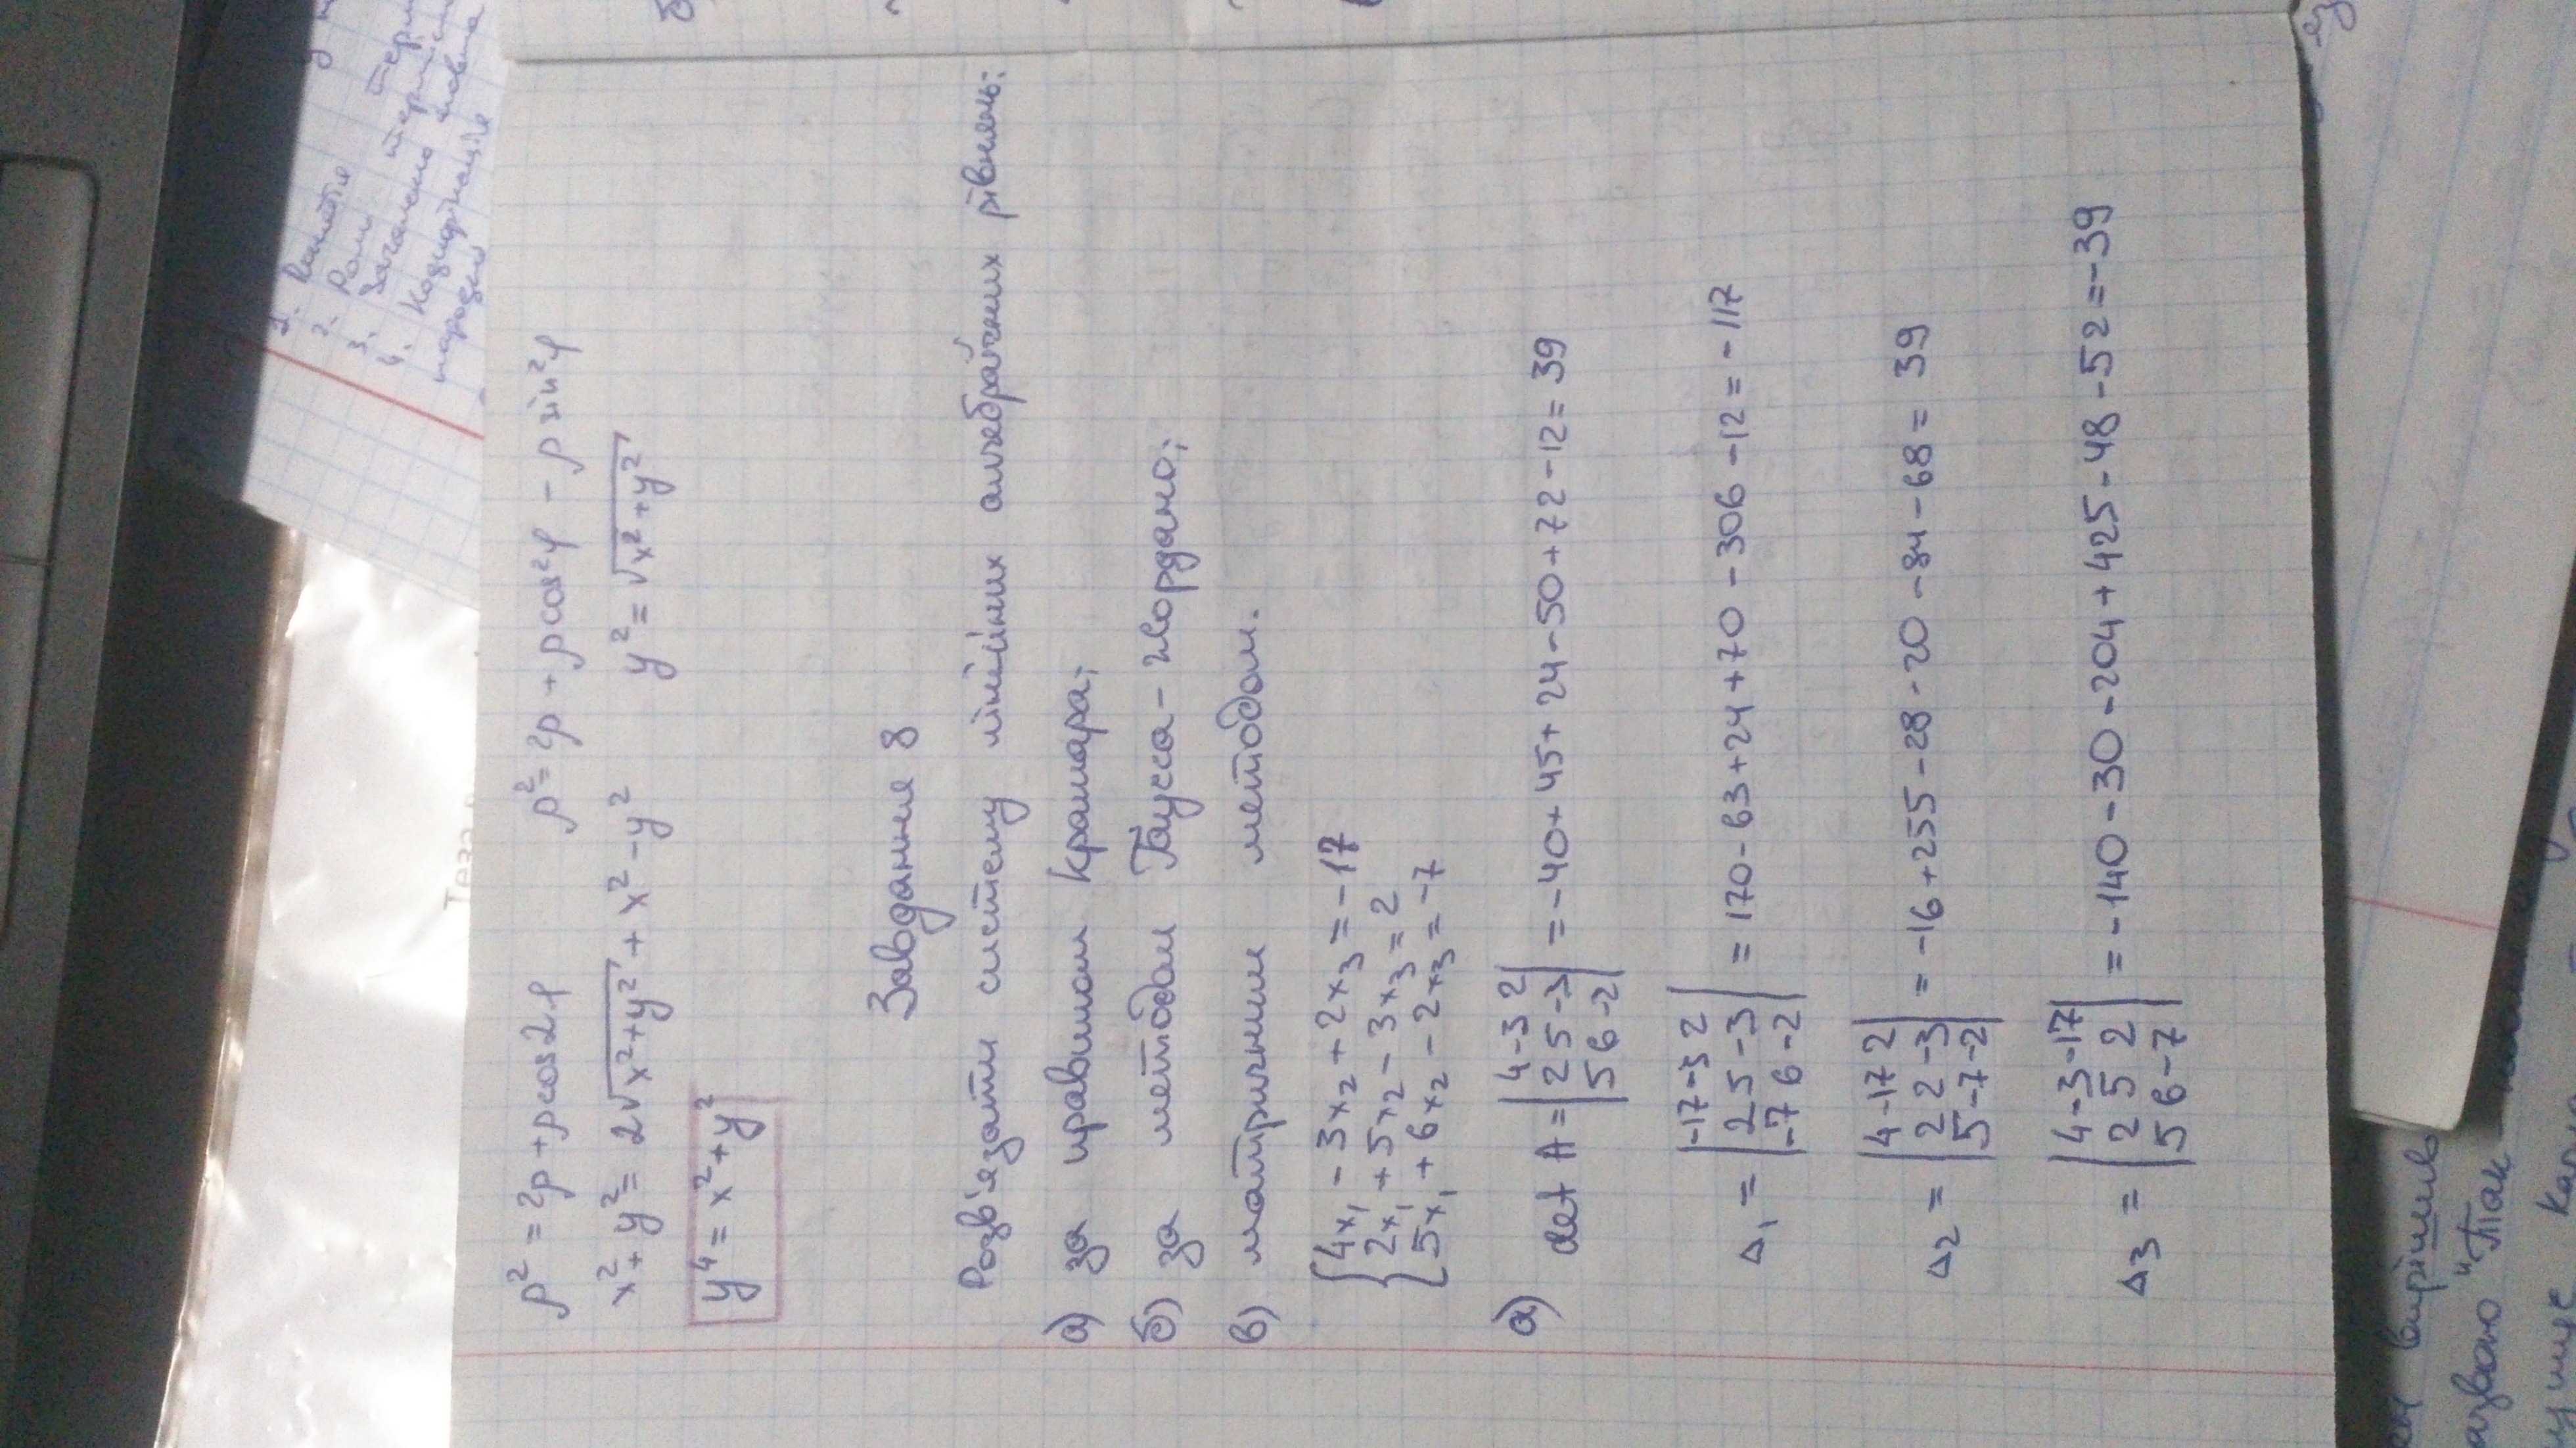 Теза
1. Поняття терм
2. Роль
3. Загальна
4. Кодифікація
ρ² = 2ρ + ρcos2φ    ρ² = 2ρ + ρcos²φ - ρsin²φ
x² + y² = 2√(x²+y²) + x² - y²    y² = √(x²+y²)
y⁴ = x² + y²
Завдання 8
Розв'язати систему лінійних алгебраїчних рівнянь:
а) за правилом Крамара;
б) за методом Гаусса-Жордано;
в) матричним методом.
4x₁ - 3x₂ + 2x₃ = -17
2x₁ + 5x₂ - 3x₃ = 2
5x₁ + 6x₂ - 2x₃ = -7
а)
4 -3 2
det A = 2 5 -3 = -40 + 45 + 24 - 50 + 72 - 12 = 39
5 6 -2
-17 -3 2
Δ₁ = 2 5 -3 = 170 - 63 + 24 + 70 - 306 - 12 = -117
-7 6 -2
4 -17 2
Δ₂ = 2 2 -3 = -16 + 255 - 28 - 20 - 84 - 68 = 39
5 -7 -2
4 -3 -17
Δ₃ = 2 5 2 = -140 - 30 - 204 + 425 - 48 - 52 = -39
5 6 -7
вирішив
"Так